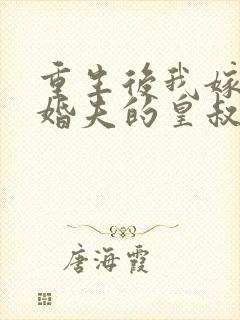 重生后我嫁
婚夫的皇叔
唐海霞